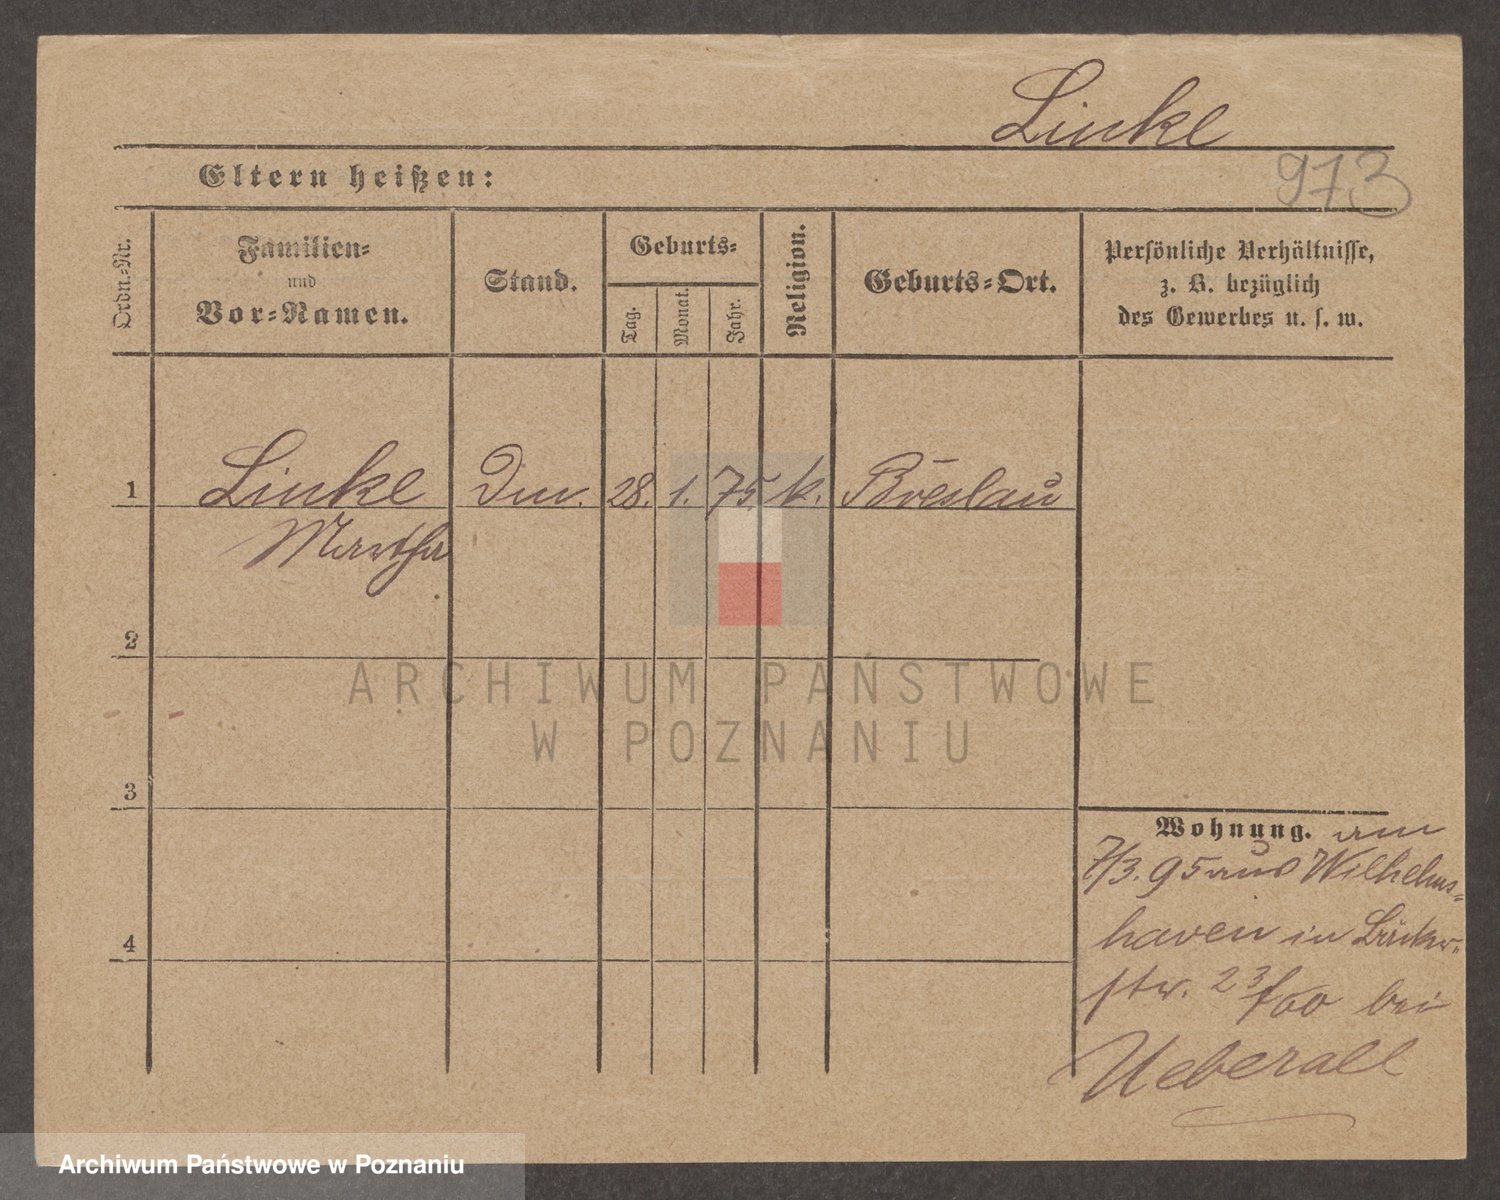 Linke
973
Eltern heißen:
Ordn.-Nr.
Familien-
und
Vor-Namen.
Stand.
Geburts-
Tag.
Monat.
Jahr.
Religion.
Geburts-Ort.
Persönliche Verhältnisse,
z. B. bezüglich
des Gewerbes u. s. w.
1 Linke 28. 1. 75 k. Breslau
Martha
2
3
4
Wohnung. am
7/3. 95 aus Wilhelms-
haven in Bäcker-
str. bei
Ueberall
ARCHIWUM PAŃSTWOWE
W POZNANIU
Archiwum Państwowe w Poznaniu